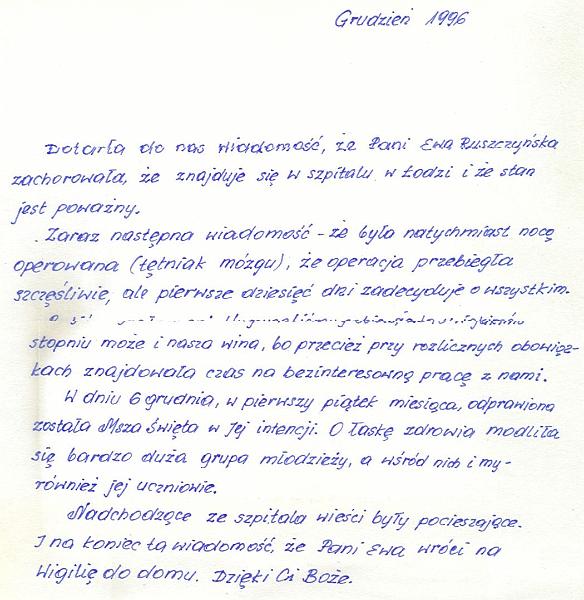 Grudzień 1996
Dotarła do nas wiadomość, że Pani Ewa Ruszczyńska
zachorowała, że znajduje się w szpitalu w Łodzi i że stan
jest poważny.
Zaraz następna wiadomość - że była natychmiast nocą
operowana (tętniak mózgu), że operacja przebiegła
szczęśliwie, ale pierwsze dziesięć dni zadecyduje o wszystkim.
stopniu może i nasza wina, bo przecież przy rozlicznych obowiąz-
kach znajdowała czas na bezinteresowną pracę z nami.
W dniu 6 grudnia, w pierwszy piątek miesiąca, odprawiona
została Msza Święta w Jej intencji. O łaskę zdrowia modliła
się bardzo duża grupa młodzieży, a wśród nich i my-
również jej uczniowie.
Nadchodzące ze szpitala wieści były pocieszające.
I na koniec ta wiadomość, że Pani Ewa wróci na
Wigilię do domu. Dzięki Ci Boże.